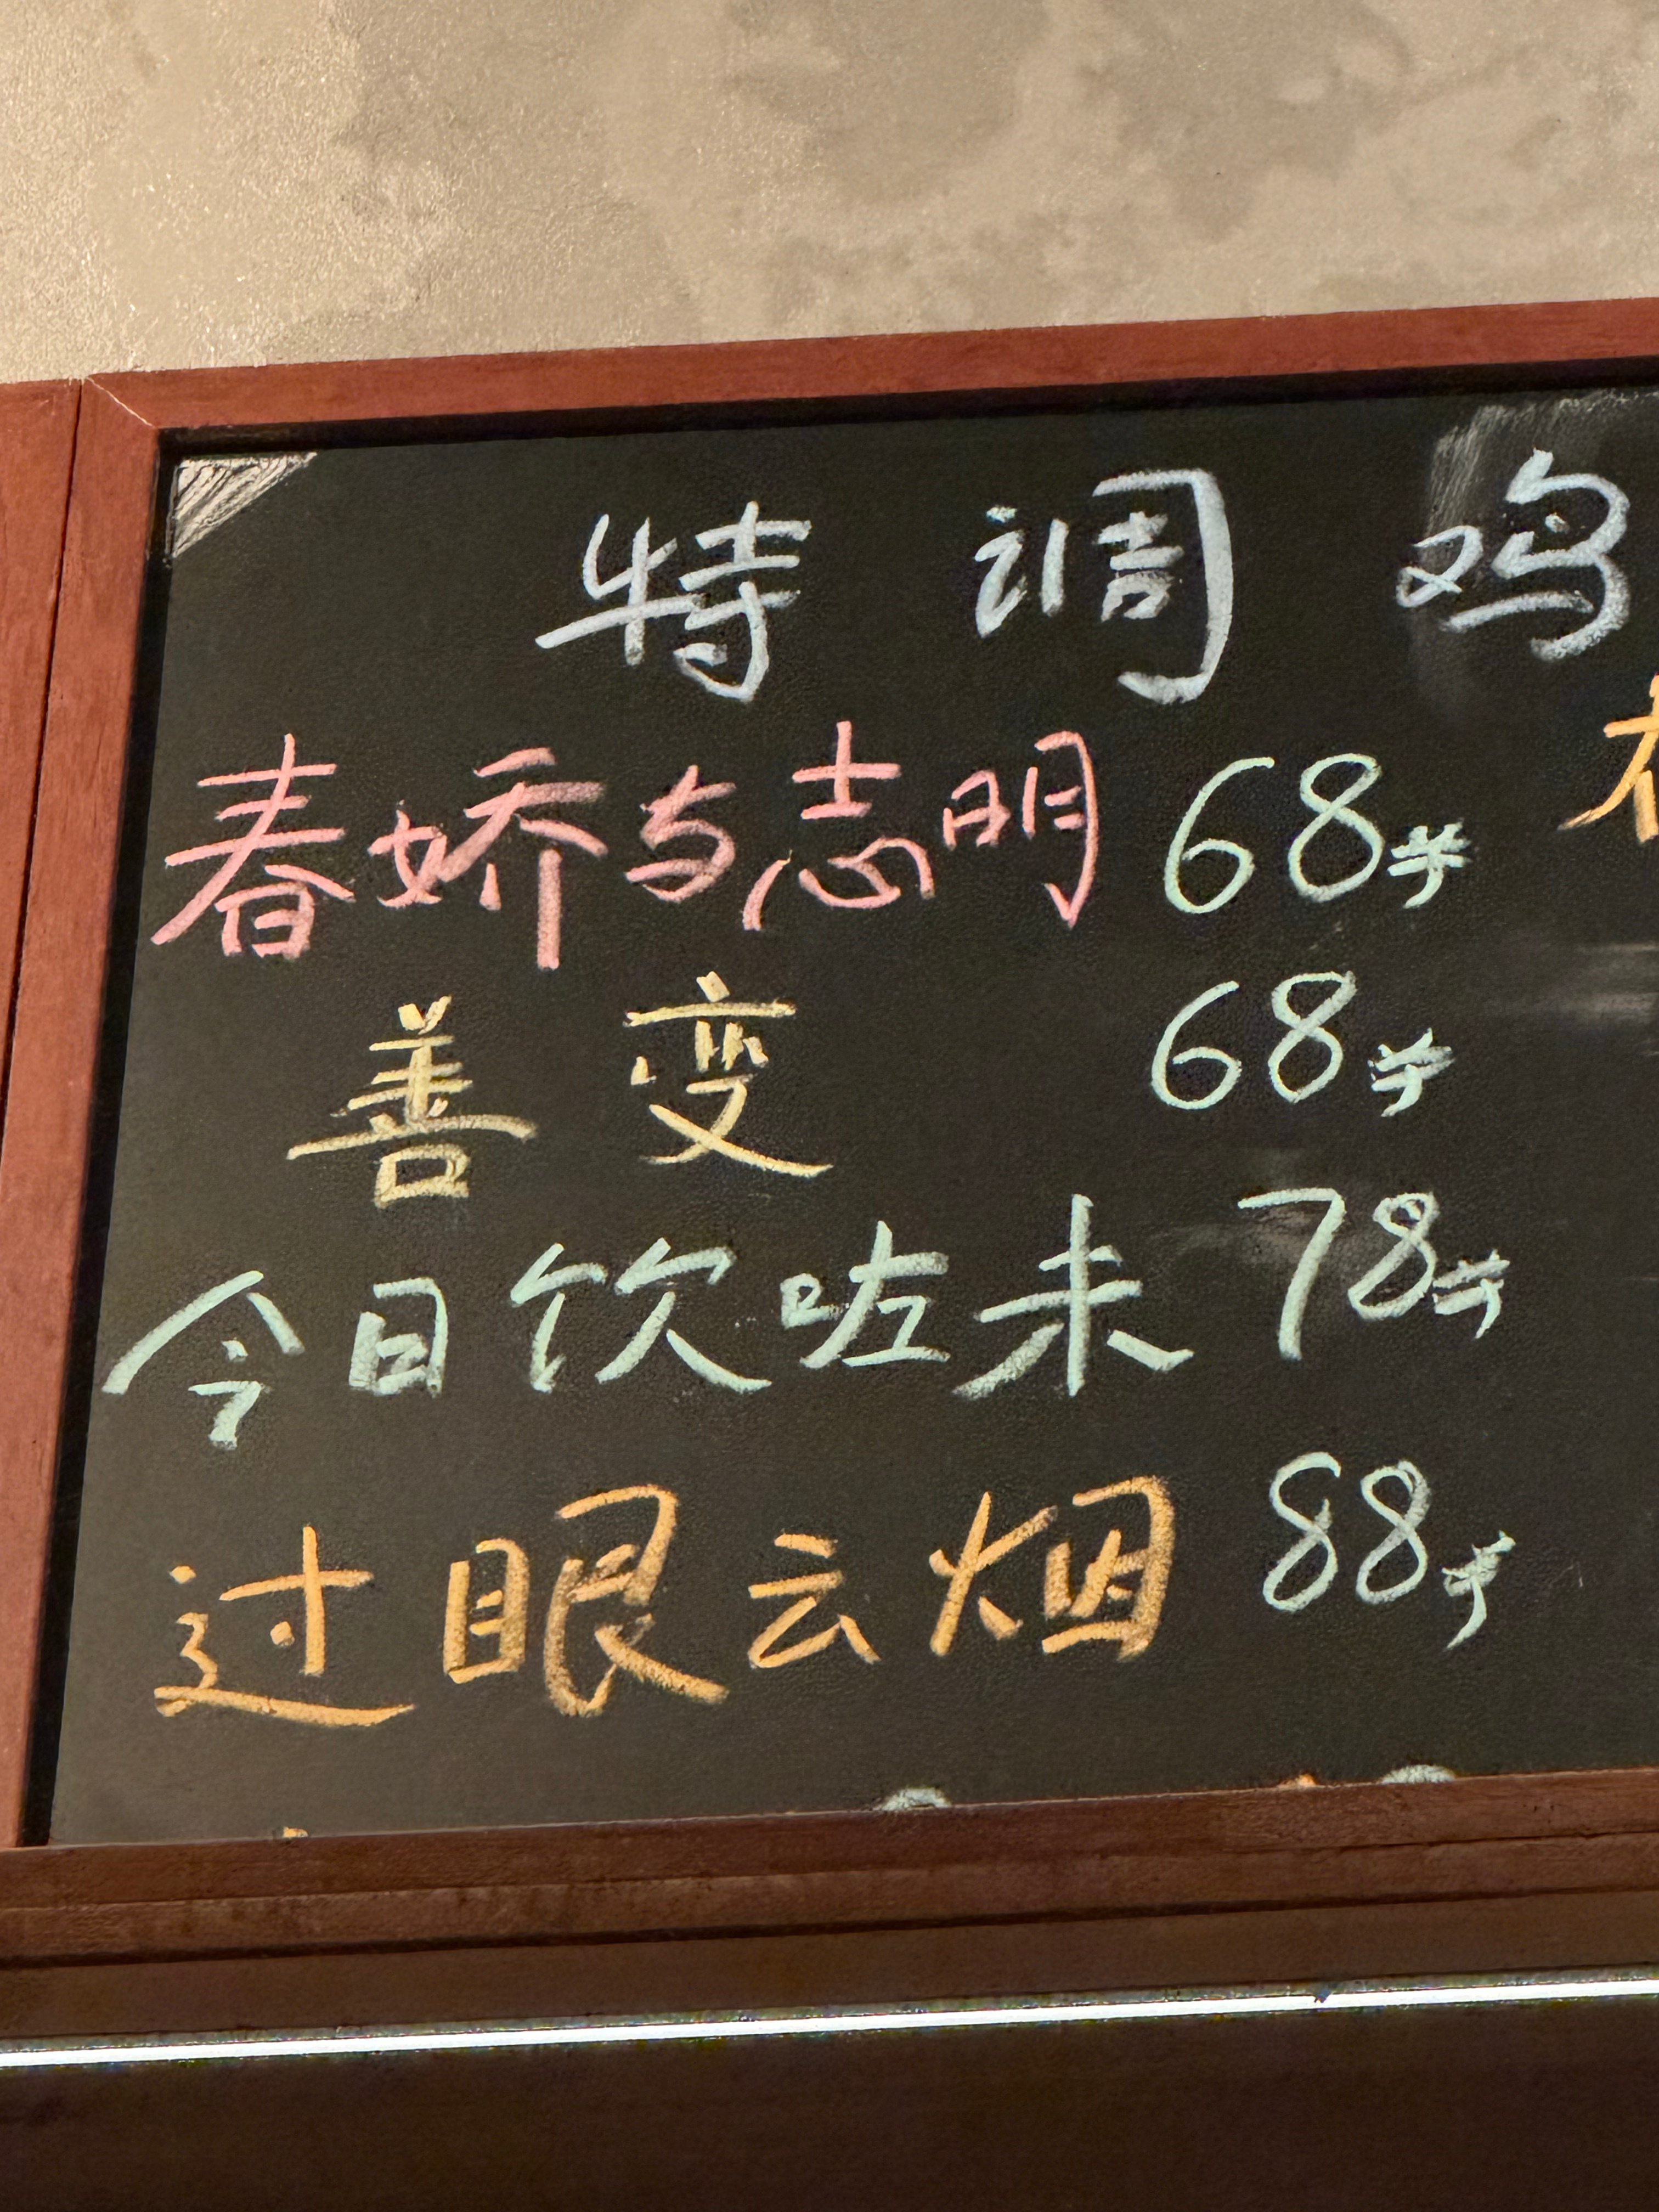 特调鸡
春娇与志明 68元
善变 68元
今日饮咗未 78元
过眼云烟 88元